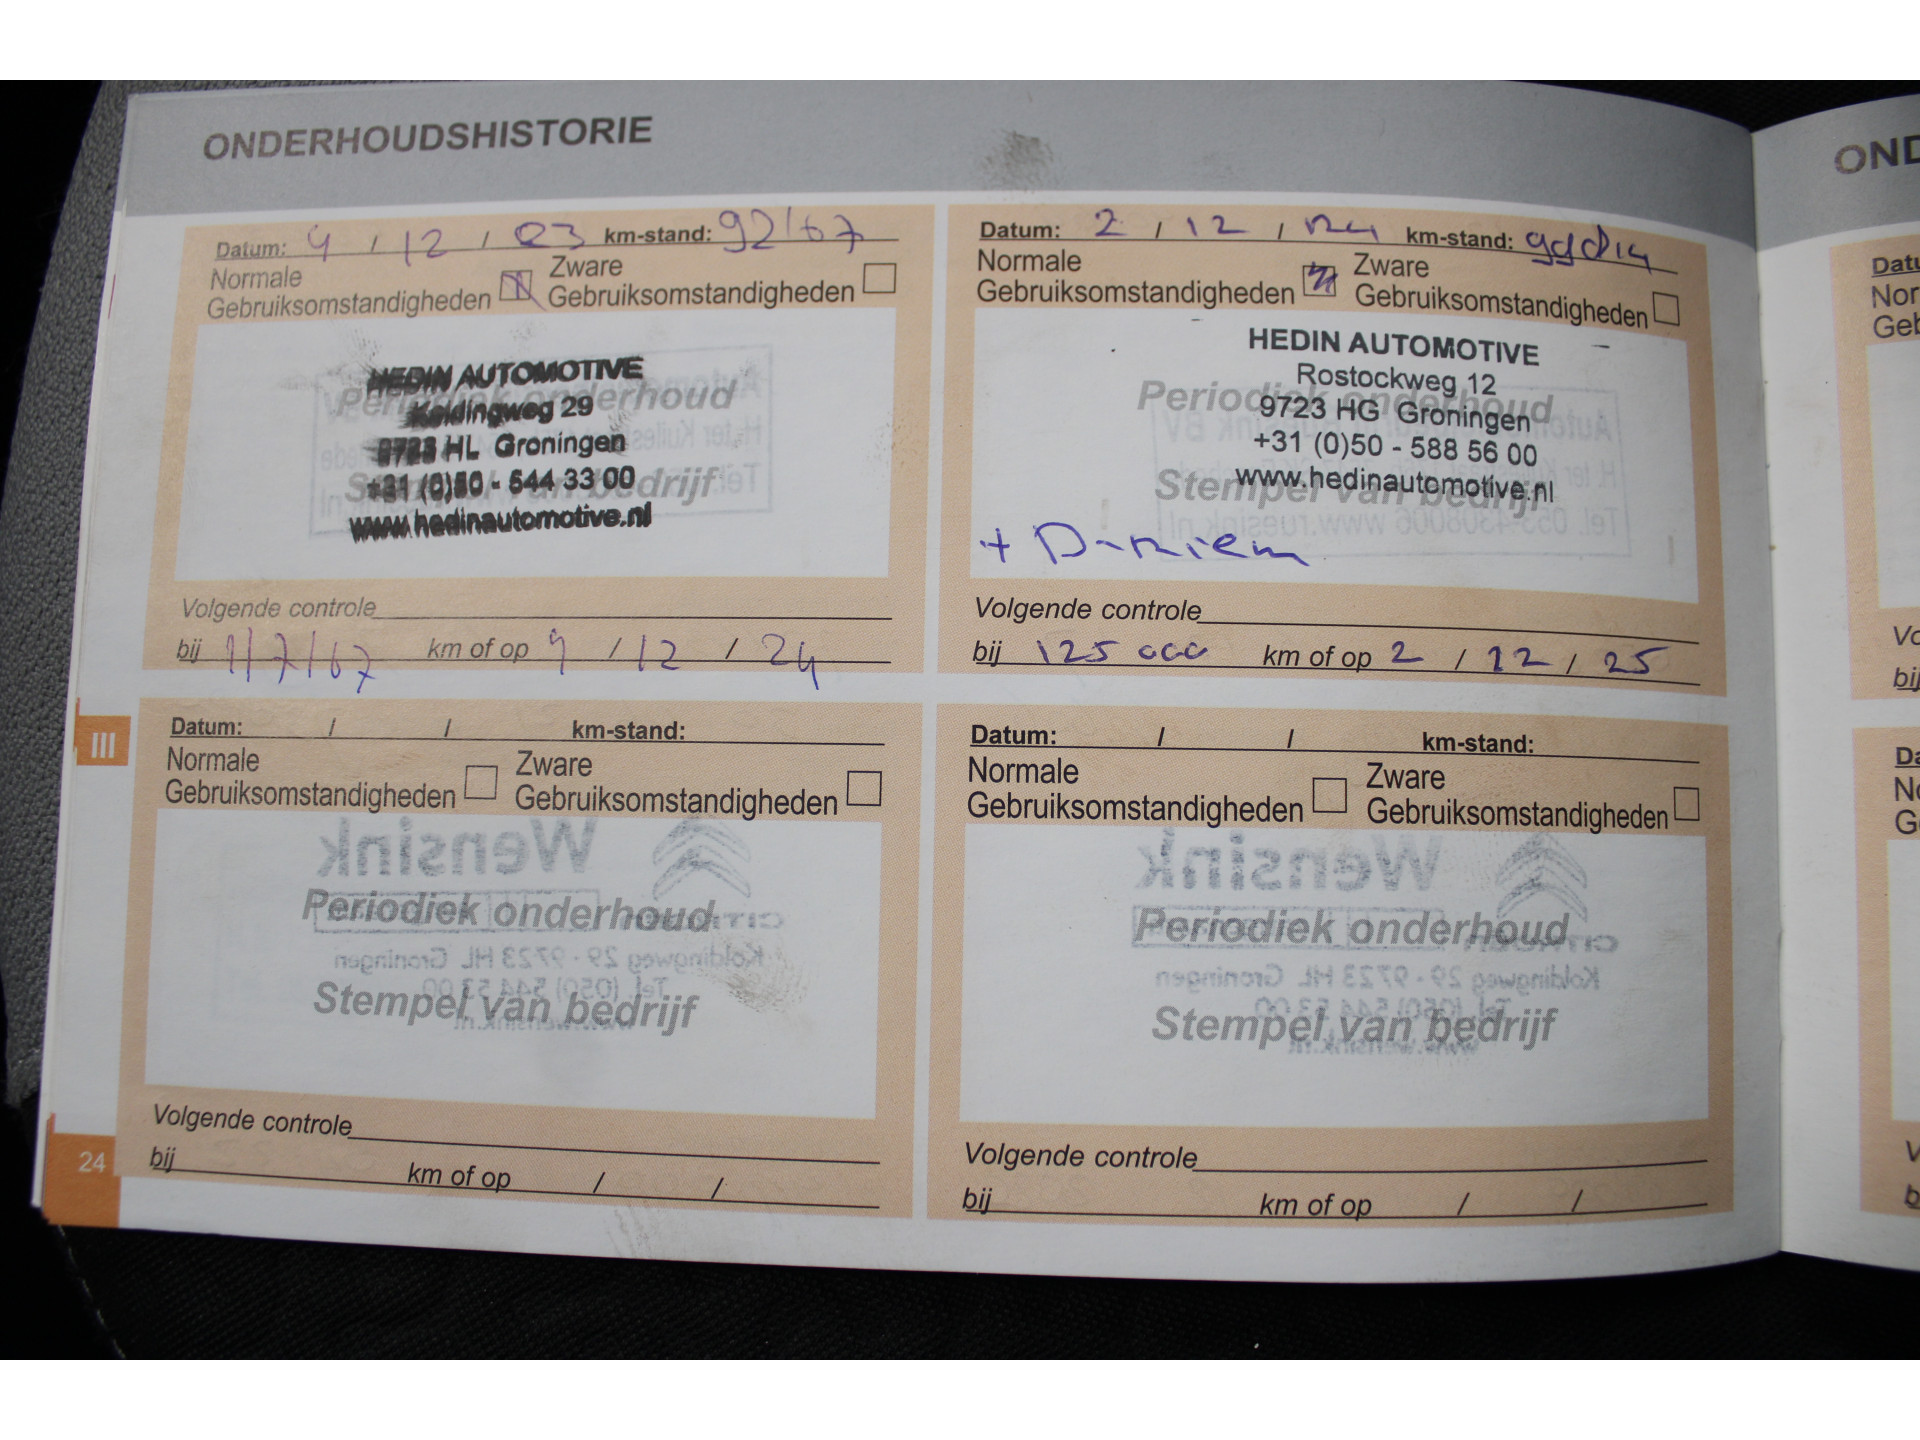 ONDERHOUDSHISTORIE
Datum: 4 / 12 / 23 km-stand: 92167
Normale
Gebruiksomstandigheden
Zware
Gebruiksomstandigheden
HEDIN AUTOMOTIVE
Koldingweg 29
9723 HL Groningen
+31 (0)50 - 544 33 00
www.hedinautomotive.nl
Periodiek onderhoud
Stempel van bedrijf
Volgende controle
bij 117167 km of op 4 / 12 / 24
Datum: 2 / 12 / 24 km-stand:
Normale
Gebruiksomstandigheden
Zware
Gebruiksomstandigheden
HEDIN AUTOMOTIVE
Rostockweg 12
9723 HG Groningen
+31 (0)50 - 588 56 00
www.hedinautomotive.nl
Periodiek onderhoud
Stempel van bedrijf
+ D-riem
Volgende controle
bij 125 000 km of op 2 / 12 / 25
Datum: / / km-stand:
Normale
Gebruiksomstandigheden
Zware
Gebruiksomstandigheden
Periodiek onderhoud
Stempel van bedrijf
Volgende controle
bij km of op / /
Datum: / / km-stand:
Normale
Gebruiksomstandigheden
Zware
Gebruiksomstandigheden
Periodiek onderhoud
Stempel van bedrijf
Volgende controle
bij km of op / /
III
24